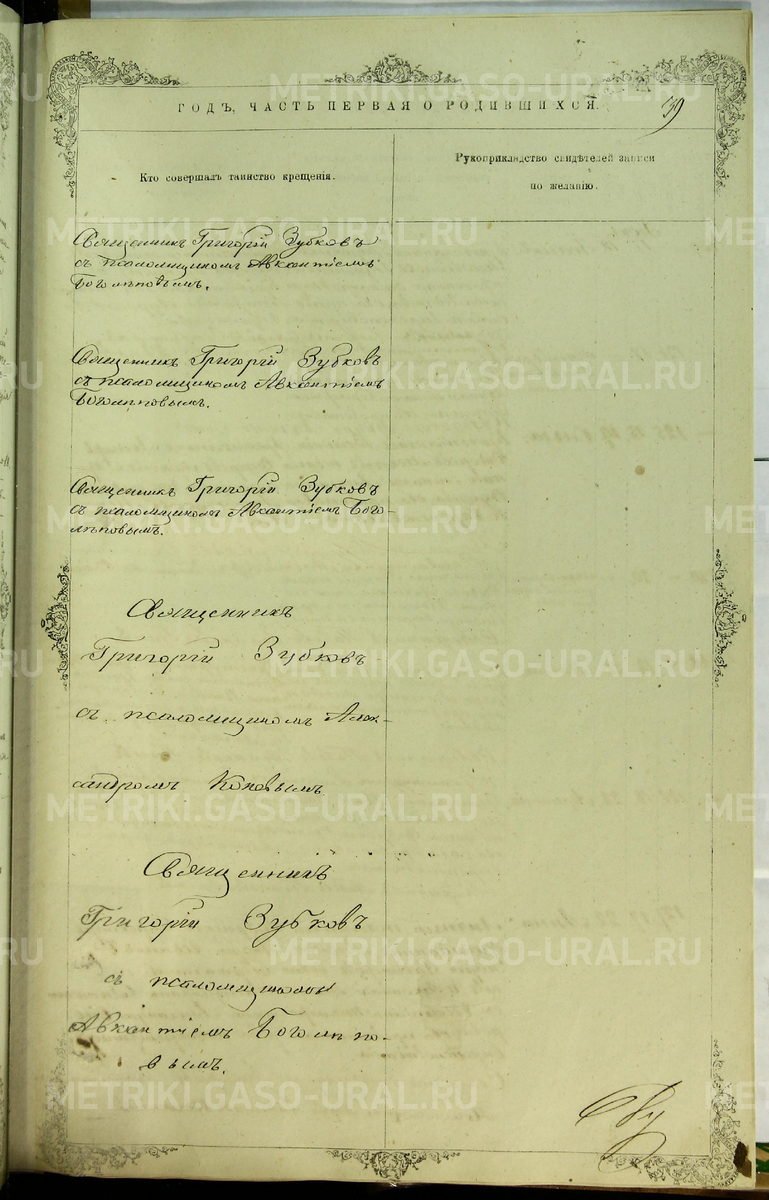 ГОДЪ, ЧАСТЬ ПЕРВАЯ О РОДИВШИХСЯ.
39
Кто совершалъ таинство крещенія.
Рукоприкладство свидѣтелей записи
по желанію.
Священникъ Григорій Зубковъ
съ псаломщикомъ Авксентіемъ
Боголѣповымъ.
Священникъ Григорій Зубковъ
съ псаломщикомъ Авксентіемъ
Боголѣповымъ.
Священникъ Григорій Зубковъ
съ псаломщикомъ Авксентіемъ Бого-
лѣповымъ.
Священникъ
Григорій Зубковъ
съ псаломщикомъ Алек-
сандромъ
Священникъ
Григорій Зубковъ
съ псаломщикомъ
Авксентіемъ Боголѣпо-
вымъ.
METRIKI.GASO-URAL.RU